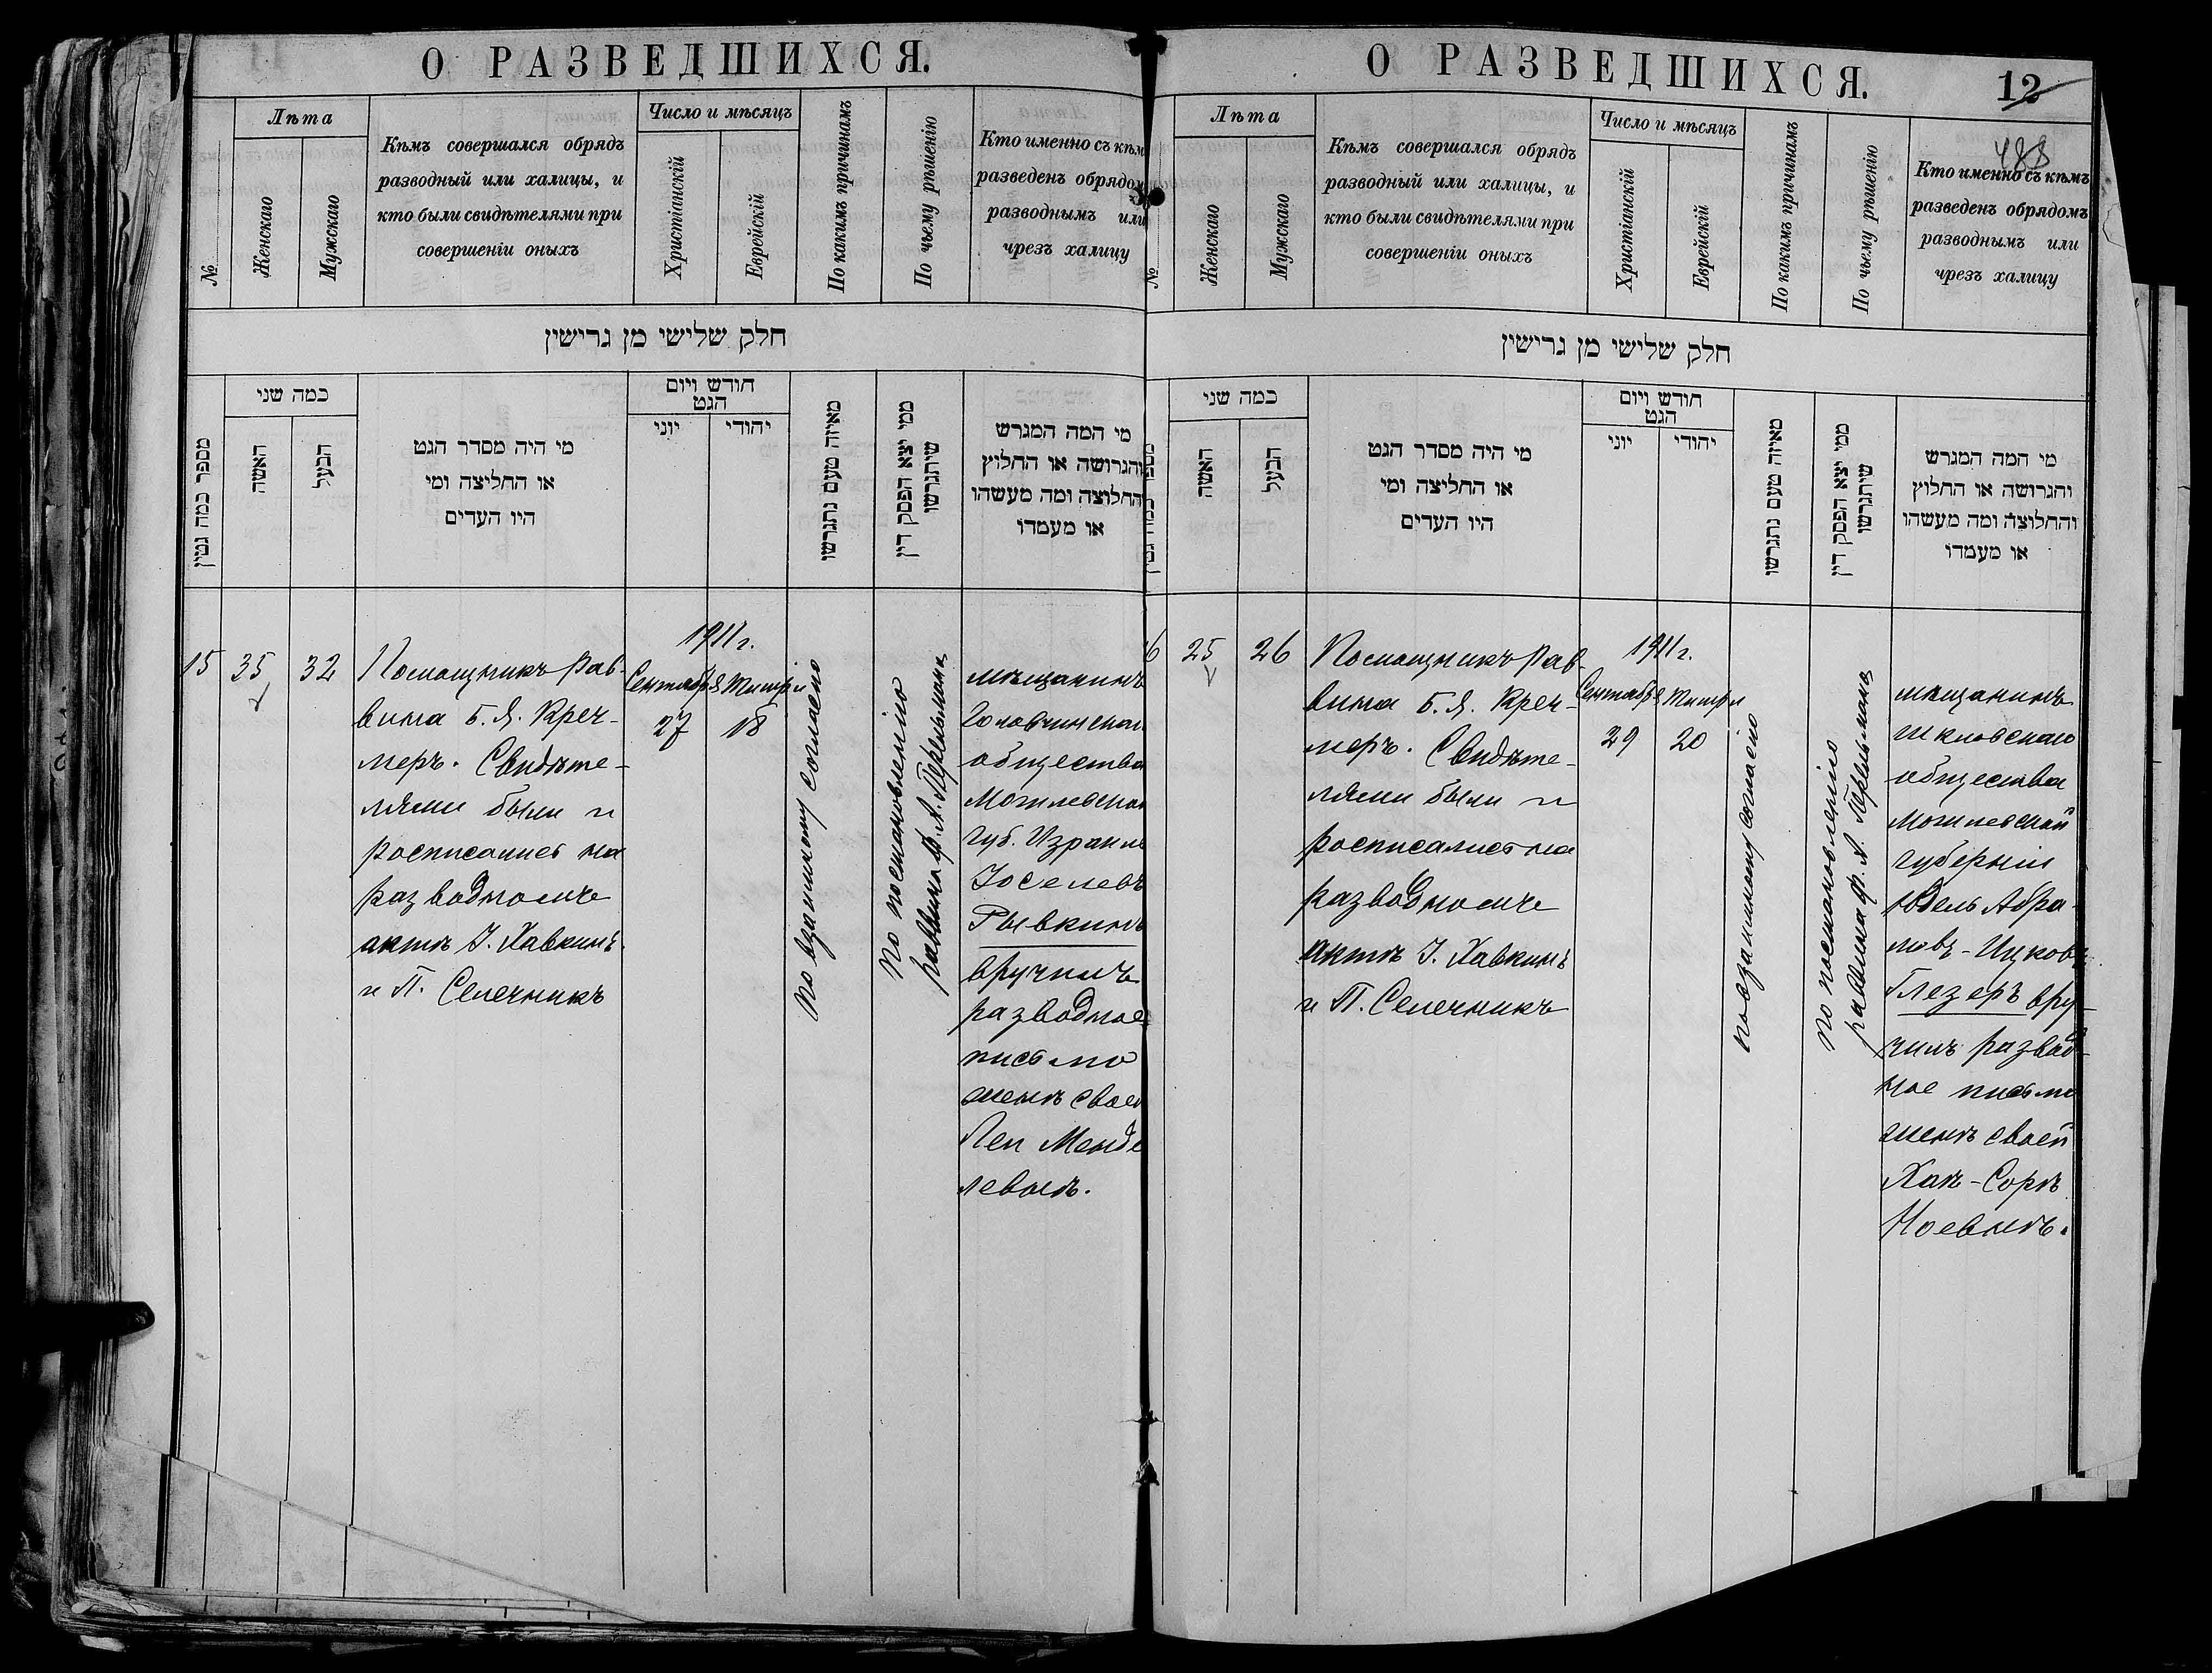 О РАЗВЕДШИХСЯ.
№
Лѣта
Женскаго
Мужскаго
Кѣмъ совершался обрядъ
разводный или халицы, и
кто были свидѣтелями при
совершеніи оныхъ
Число и мѣсяцъ
Христіанскій
Еврейскій
По какимъ причинамъ
По чьему рѣшенію
Кто именно съ кѣмъ
разведенъ обрядом
разводнымъ или
чрезъ халицу
חלק שלישי מן גרישין
מספר כמה גטין
כמה שני
האשה
הבעל
מי היה מסדר הגט
או החליצה ומי
היו העדים
חודש ויום
הגט
יוני
יהודי
מאיזה טעם נתגרשו
ממי יצא הפסק דין
שיתגרשו
מי המה המגרש
והגרושה או החלוץ
והחלוצה ומה מעשהו
או מעמדו
15
35
32
Помощникъ рав-
вина Б. Я. Креч-
меръ. Свидѣте-
лями были и
росписались на
разводномъ
актѣ І. Хавкинъ
и П. Селечникъ
1911 г.
Сентября Тишри
27 18
по взаимному согласію
по постановленію
раввина Ф. Л. Перельмана
мѣщанинъ
Головчинскаго
общества
Могилевской
губ. Израиль
Іоселевъ
Рывкинъ
вручилъ
разводное
письмо
женѣ своей
Леи Менде
левой.
О РАЗВЕДШИХСЯ.
12
488
№
Лѣта
Женскаго
Мужскаго
Кѣмъ совершался обрядъ
разводный или халицы, и
кто были свидѣтелями при
совершеніи оныхъ
Число и мѣсяцъ
Христіанскій
Еврейскій
По какимъ причинамъ
По чьему рѣшенію
Кто именно съ кѣмъ
разведенъ обрядомъ
разводнымъ или
чрезъ халицу
חלק שלישי מן גרישין
כמה שני
האשה
הבעל
מי היה מסדר הגט
או החליצה ומי
היו העדים
חודש ויום
הגט
יוני
יהודי
מאיזה טעם נתגרשו
ממי יצא הפסק דין
שיתגרשו
מי המה המגרש
והגרושה או החלוץ
והחלוצה ומה מעשהו
או מעמדו
6
25
26
Помощникъ рав-
вина Б. Я. Креч-
меръ. Свидѣте-
лями были и
росписались на
разводномъ
актѣ І. Хавкинъ
и П. Селечникъ
1911 г.
Сентября Тишри
29 20
по взаимному согласію
по постановленію
раввина Ф. Л. Перельмана
мѣщанинъ
шкловскаго
общества
Могилевской
губерніи
Юдель Абра-
мовъ-Ицковъ
Глезеръ вру-
чилъ развод-
ное письмо
женѣ своей
Хаѣ-Сорѣ
Ноевнѣ.